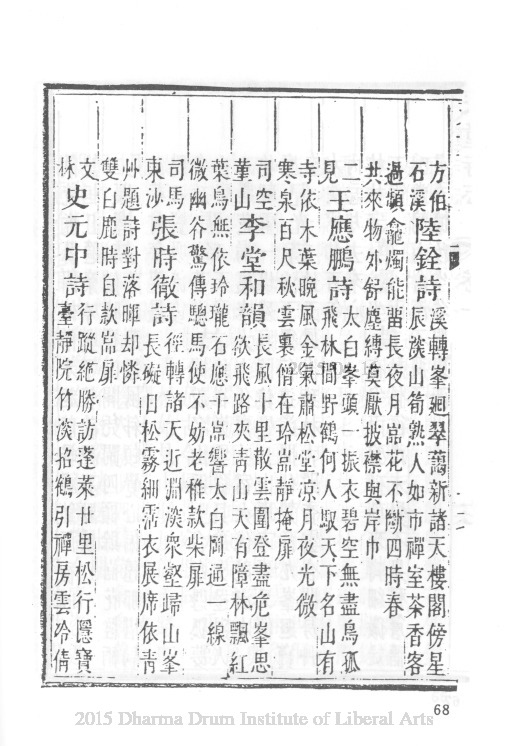 方伯
石溪
陸銓詩
溪轉峯迴翠藹新諸天樓閣傍星
辰淡山筍熟人如市禪室茶香客
過頻龕燭能畱長夜月嵓花不斷四時春
共來物外舒塵縛莫厭披襟與岸巾
二
見
王應鵬詩
太白峯頭一振衣碧空無盡鳥孤
飛林間野鶴何人馭天下名山有
寺依木葉晚風金氣肅松堂凉月夜光微
寒泉百尺秋雲裏僧在玲嵓靜掩扉
司空
菫山
李堂和韻
長風十里散雲圍登盡危峯思
欲飛路夾青山天有障林飄紅
葉鳥無依玲瓏石應千嵓響太白岡通一線
微幽谷驚傳驄馬使不妨老稚款柴扉
司馬
東沙
張時徹詩
徑轉諸天近淵淡衆壑歸山峯
長礙日松霧細霑衣展席依靑
艸題詩對落暉却憐
雙白鹿時自款嵓扉
文
林
史元中詩
行蹤絶勝訪蓬萊廿里松行隱寶
臺靜院竹淡招鶴引禪房雲冷倩
68
2015 Dharma Drum Institute of Liberal Arts